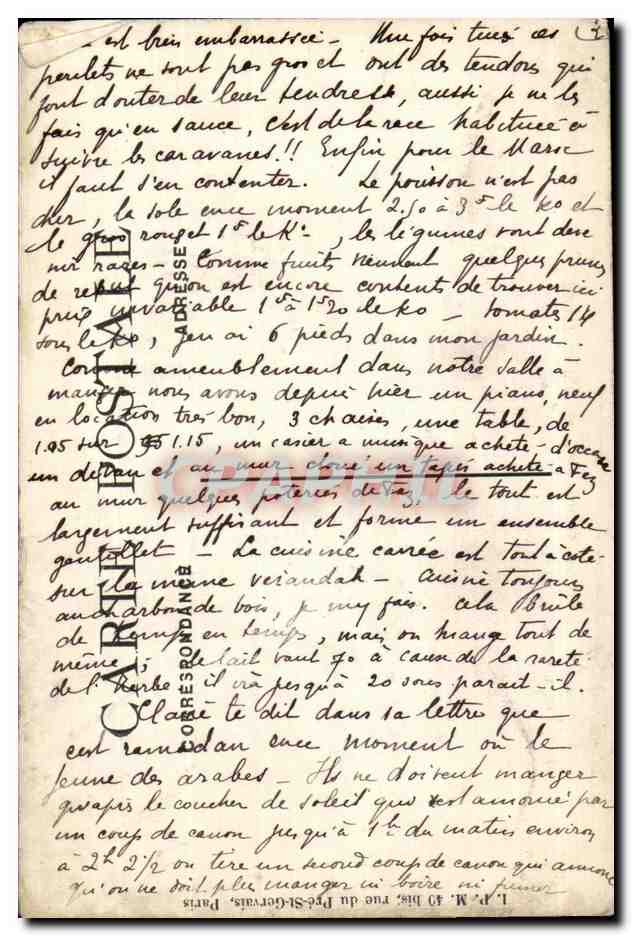 - est bien embarrassée - Une fois tués ces
poulets ne sont pas gros et ont des tendons qui
font douter de leur tendresse, aussi je ne les
fais qu'en sauce, c'est de la race habituée à
suivre les caravanes!! Enfin pour le Maroc
il faut s'en contenter. Le poisson n'est pas
cher, la sole en ce moment 2.50 à 3f le ko et
le gros rouget 1f le Ko, les légumes sont deve
nir rares - Comme fruits viennent quelques prunes
de rebut qu'on est encore contents de trouver ici
prix invariable 1f à 1f20 le ko - tomates 14
sous le ko, j'en ai 6 pieds dans mon jardin.
Comme ameublement dans notre salle à
manger nous avons depuis hier un piano, neuf
en location très bon, 3 chaises, une table, de
1.05 sur 1.15, un casier a musique acheté d'occase
un divan et au mur cloué un tapis acheté à Fez
au mur quelques poteries de Fez, le tout est
largement suffisant et forme un ensemble
gentillet - La cuisine carrée est tout à côté
sur la même verandah - Cuisine toujours
au charbon de bois, je m'y fais. Cela brûle
de temps en temps, mais on mange tout de
même; le lait vaut 70 à cause de la rareté
de l'herbe il ira jusqu'à 20 sous parait-il.
te dit dans sa lettre que
c'est ramadan en ce moment où le
jeune des arabes - Ils ne doivent manger
qu'après le coucher de soleil qui est annoncé par
un coup de canon jusqu'à 1h du matin environ
à 2h 2 1/2 on tire un second coup de canon qui annonce
qu'on ne doit plus manger ni boire ni fumer
CARTE POSTALE
CORRESPONDANCE
ADRESSE
I. P. M. 40 bis, rue du Pré-St-Gervais, Paris
CPAPHIL